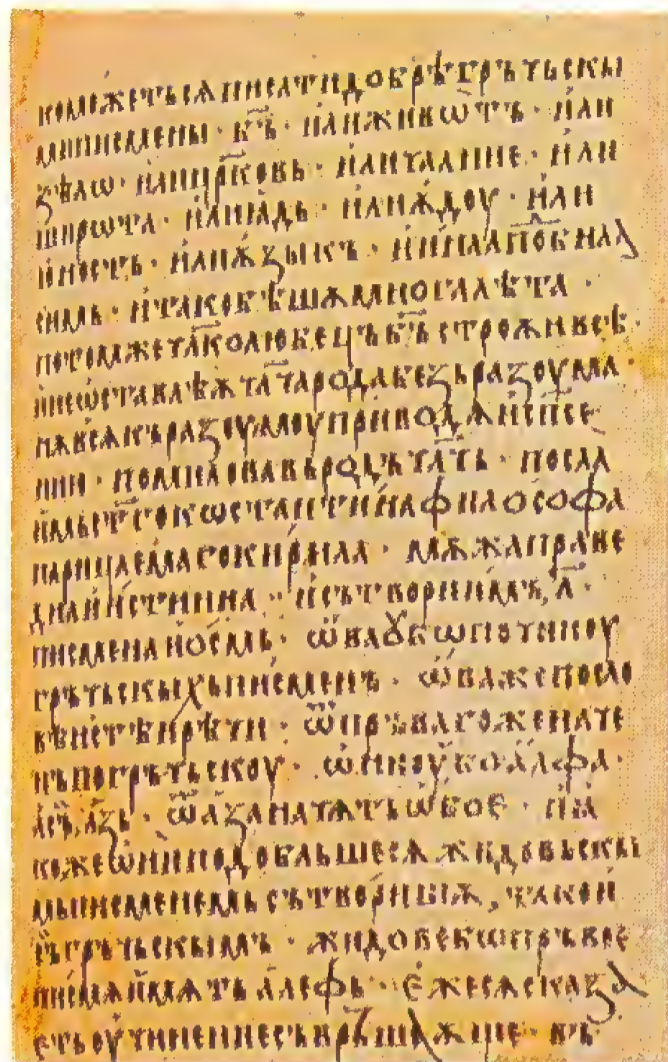 коможетьсѧписатидобрѣгрьчьскы
миписмены · б҃ъ · илиживѡтъ · или
ѕѣлѡ · илицр҃ковь · иличаание · или
широта · илиꙗдь · илиѫдоу · или
юность · илиѫзыкъ · ииннаапо҃бнаа
симь · итакобѣшѫмногалѣта ·
потомжечл҃колюбецъб҃ъстроѫивсѣ ·
инеѡставлѣѫчл҃чародабезьразоума ·
нѫвсѧкъразоумоуприводѧисп҃се
нию · помиловавьродъчл҃чь · посла
имьст҃гокѡстантинафилософа
нарицаемагокирила · мѫжаправе
днаиистинна · исътвориимъ, л҃ ·
писменаиосмь · ѡ҆ваꙋ҆бѡпочиноу
грьчьскыхьписменъ · ѡ҆важепосло
вѣнстѣирѣчи · ѿпрьвагоженаче
нъпогрьчьскоу · ѡниоубоалфа ·
асъ, азъ · ѿазаначѧтъѡбое · иꙗ
кожеѡниподобльшесѧжидовьскы
мьписменемьсътворишѫ, такои
сьгрьчьскымъ · жидовебѡпрьвое
писмѧимѫтьалефь · ежесѧсказа
етьоучениесъврьшаѫще · въ